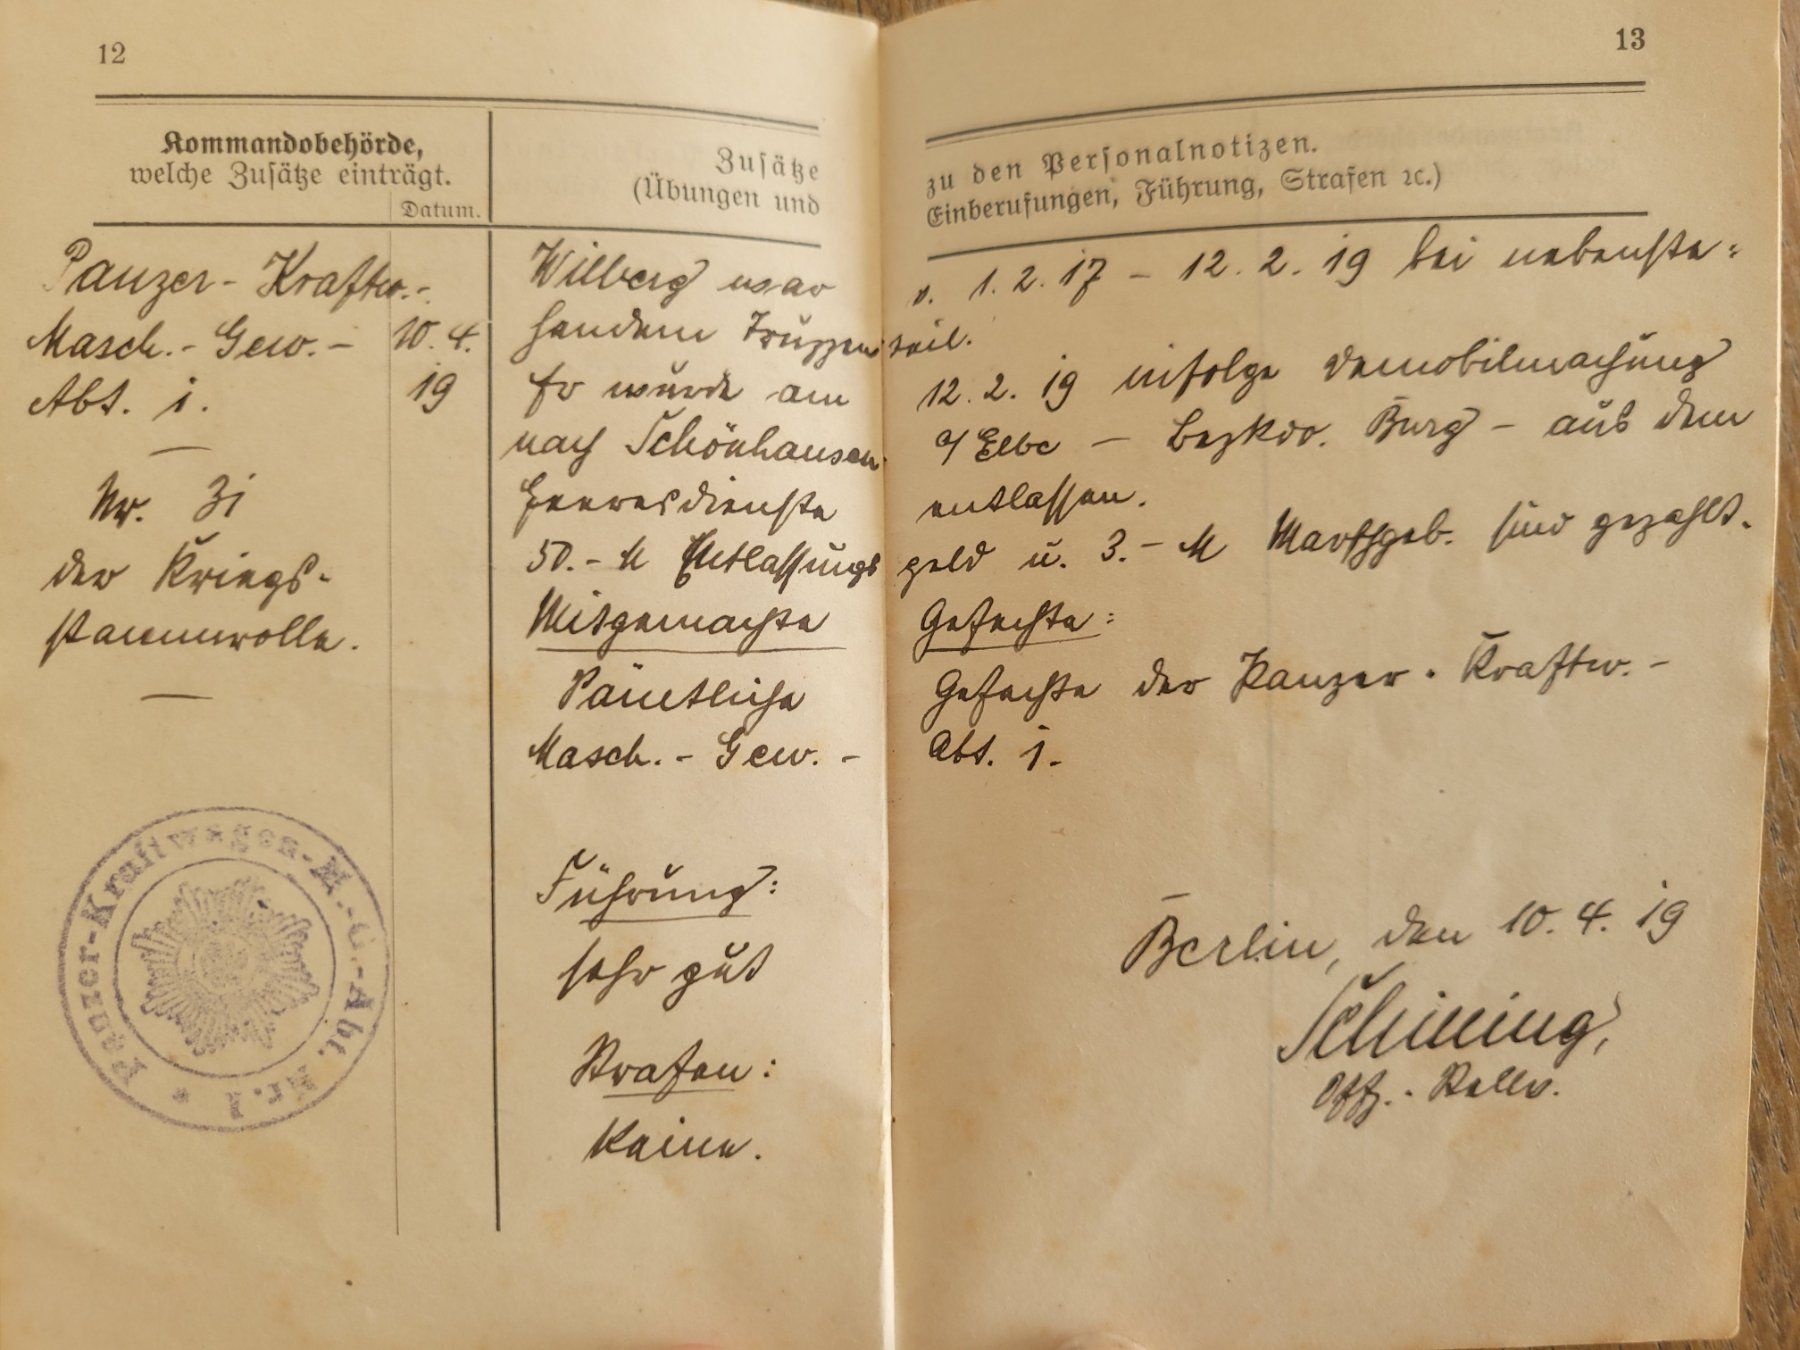 12
13
Kommandobehörde,
welche Zusätze einträgt.
Datum.
Zusätze
(Übungen und
zu den Personalnotizen.
Einberufungen, Führung, Strafen ꝛc.)
Panzer-Kraftw.-
Masch.-Gew.-
Abt. 1.
10. 4.
19
Nr. 31
der Kriegs-
stammrolle.
Wilberg war v. 1. 2. 17 – 12. 2. 19 bei nebenste=
hendem Truppenteil.
Er wurde am 12. 2. 19 infolge Demobilmachung
nach Schönhausen a/Elbe – Bezkdo. Burg – aus dem
Heeresdienste entlassen.
50.- M Entlassungsgeld u. 3.- M Marschgeb. sind gezahlt.
Mitgemachte Gefechte:
Sämtliche Gefechte der Panzer-Kraftw.-
Masch.-Gew.- Abt. 1.
Führung:
sehr gut
Strafen:
Keine.
Berlin, den 10. 4. 19
Offz.-Stellv.
Panzer-Kraftwagen-M.-G.-Abt. Nr. 1 *